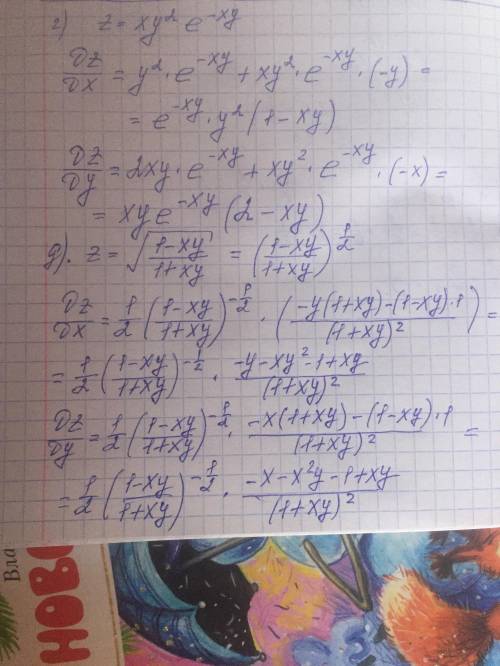 г) z = xy² e^{-xy}
∂z/∂x = y² · e^{-xy} + xy² · e^{-xy} · (-y) =
= e^{-xy} · y² (1 - xy)
∂z/∂y = 2xy · e^{-xy} + xy² · e^{-xy} · (-x) =
= xye^{-xy} (2 - xy)
д). z = √((1-xy)/(1+xy)) = ((1-xy)/(1+xy))^{1/2}
∂z/∂x = 1/2 ((1-xy)/(1+xy))^{-1/2} · ((-y(1+xy)-(1-xy)·1)/(1+xy)²) =
= 1/2 ((1-xy)/(1+xy))^{-1/2} · (-y-xy²-1+xy)/(1+xy)²
∂z/∂y = 1/2 ((1-xy)/(1+xy))^{-1/2} · (-x(1+xy)-(1-xy)·1)/(1+xy)² =
= 1/2 ((1-xy)/(1+xy))^{-1/2} · (-x-x²y-1+xy)/(1+xy)²
Вла
НОВО